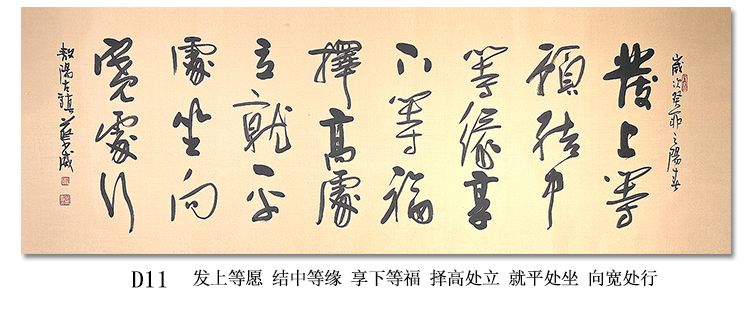 歲次癸卯之陽春
發上等
願結中
等緣享
下等福
擇高處
立就平
處坐向
寬處行
敖陽古鎮
D11 发上等愿 结中等缘 享下等福 择高处立 就平处坐 向宽处行